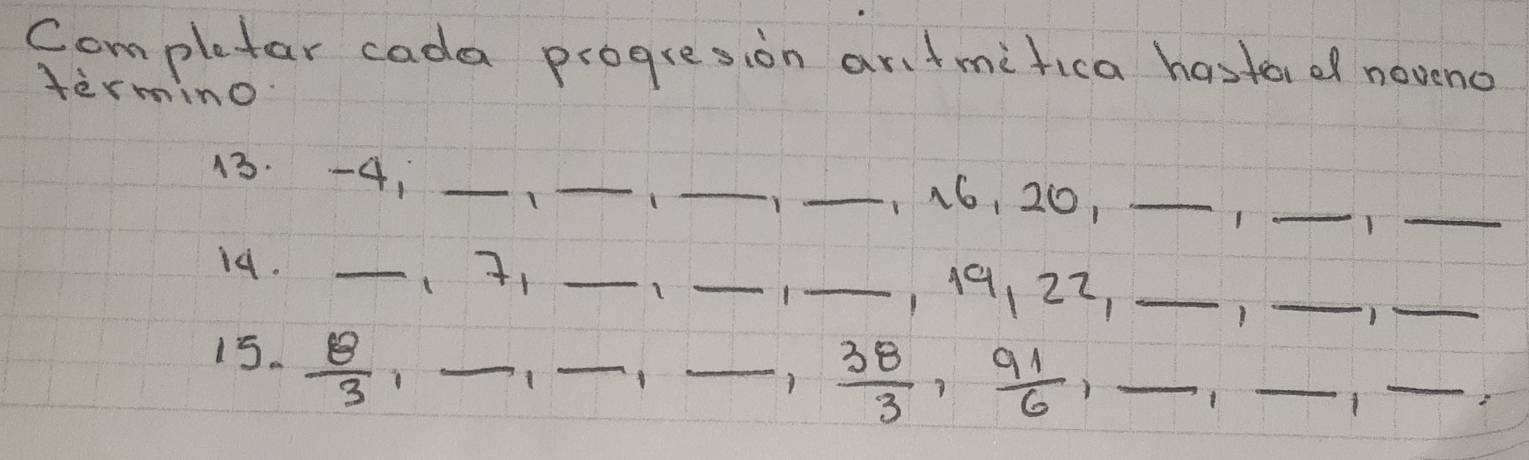 Completar cada progresión aritmética hasta el noveno
término.
13. -4, __, __, __, __, 16, 20, __, __, __
14. __, 7, __, __, __, 19, 22, __, __, __
15. 8/3, __, __, __, 38/3, 91/6, __, __, __.